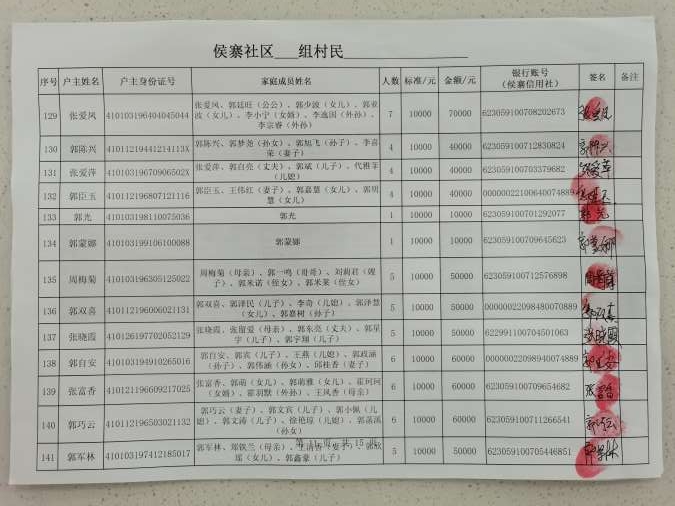 侯寨社区___组村民
序号 户主姓名 户主身份证号 家庭成员姓名 人数 标准/元 金额/元 银行账号 签名 备注
（侯寨信用社）
129 张爱凤 410103196404045044 张爱凤、郭廷旺（公公）、郭少波（女儿）、郭亚 7 10000 70000 623059100708202673
波（女儿）、李小宁（女婿）、李逸国（外孙）、
李宗睿（外孙）
130 郭陈兴 41011219441214113X 郭陈兴、郭梦尧（孙女）、郭旭飞（孙子）、李喜 4 10000 40000 623059100712830824
荣（妻子）
131 张爱萍 41010319670906502X 张爱萍、郭自亮（丈夫）、郭斌（儿子）、代雅苹（儿媳） 4 10000 40000 623059100703379682 张爱萍
132 郭臣玉 410112196807121116 郭臣玉、王伟红（妻子）、郭嘉慧（女儿）、郭玥 4 10000 40000 00000022100640074889
慧（女儿）
133 郭光 410103198110075036 郭光 1 10000 10000 623059100701292077 郭光
134 郭蒙娜 410103199106100088 郭蒙娜 1 10000 10000 623059100709645623 郭蒙娜
135 周梅菊 410103196305125022 周梅菊（母亲）、郭一鸣（哥哥）、刘莉君（嫂 5 10000 50000 623059100712576898
子）、郭米诺（侄女）、郭米莱（侄女）
136 郭双喜 410112196006021131 郭双喜、郭泽民（儿子）、李奇（儿媳）、郭泽慧 5 10000 50000 00000022098480070889
（女儿）、郭嘉树（孙子）
137 张晓霞 410126197702052129 张晓霞、张留爱（母亲）、郭东亮（丈夫）、郭星 5 10000 50000 622991100704501063 张晓霞
宇（儿子）、郭宇翔（儿子）
138 郭自安 410103194910265016 郭自安、郭宾（儿子）、王燕（儿媳）、郭政涵 6 10000 60000 00000022098940074889 郭自安
（孙子）、郭伟涵（孙女）、邱桂香（妻子）
139 张富香 410121196609217025 张富香、郭萌（女儿）、郭萌雅（女儿）、霍珂珂 6 10000 60000 623059100709654682 张富香
（女婿）、霍玥默（外孙）、王凤香（母亲）
140 郭巧云 410112196503021132 郭巧云（妻子）、郭文宾（儿子）、郭小佩（儿 6 10000 60000 623059100711266541
媳）、郭文涛（儿子）、徐艳琼（儿媳）、郭菡菡
（孙女）
141 郭军林 410103197412185017 郭军林、郑铁兰（母亲）、（妻子）、郭 5 10000 50000 623059100705446851 郭军林
瑶（女儿）、郭鑫豪（儿子）
第 11 页，共 15 页